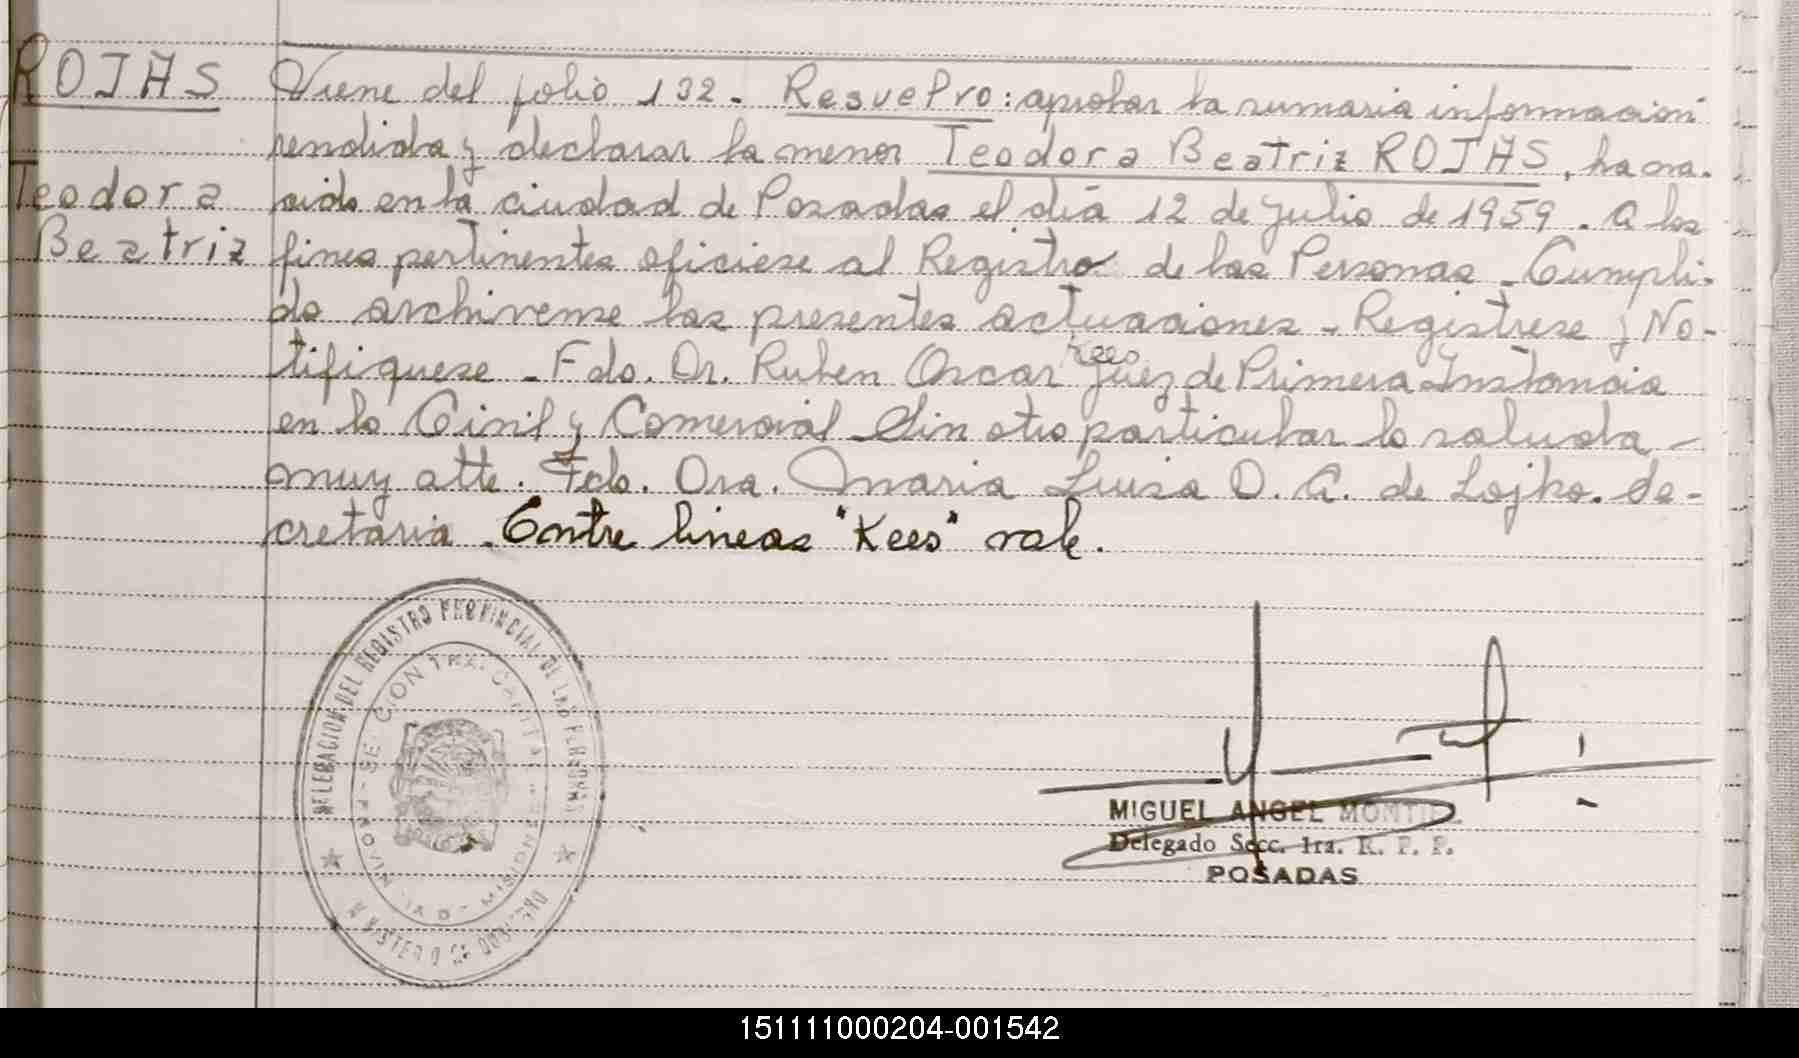 ROJAS
Teodora
Beatriz
Viene del folio 132. Resuelvo: aprobar la sumaria información
rendida y declarar la menor Teodora Beatriz ROJAS, ha na-
cido en la ciudad de Posadas el día 12 de Julio de 1959. A los
fines pertinentes ofíciese al Registro de las Personas - Cumpli-
do archivense las presentes actuaciones - Registrese y No-
tifiquese - Fdo. Dr. Ruben Oscar Kees Juez de Primera Instancia
en lo Civil y Comercial - Sin otro particular lo saluda -
muy atte. Fdo. Dra. Maria Luisa D. A. de Lojko. Se-
cretaria. Entre lineas "Kees" vale.
DELEGACION DEL REGISTRO PROVINCIAL DE LAS PERSONAS
MINISTERIO DE GOBIERNO
MIGUEL ANGEL MONTIEL
Delegado Secc. 1ra. R. P. P.
POSADAS
151111000204-001542